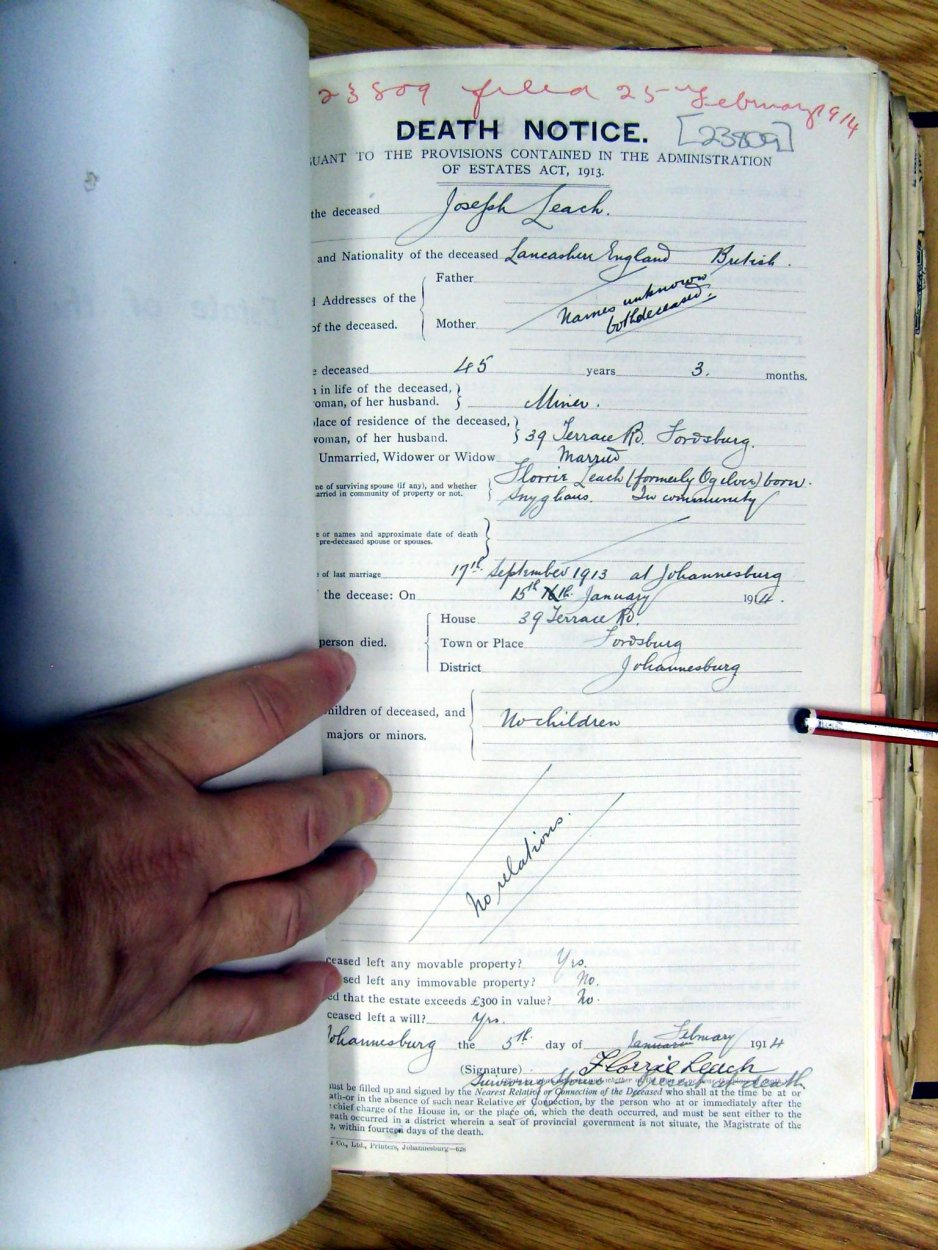 23809 filed 25th February 1914
DEATH NOTICE. [23809]
SUANT TO THE PROVISIONS CONTAINED IN THE ADMINISTRATION
OF ESTATES ACT, 1913.
the deceased Joseph Leach.
and Nationality of the deceased Lancashire England British.
Father
Addresses of the Names unknown
both deceased.
of the deceased. Mother
deceased 45 years 3. months.
in life of the deceased,
woman, of her husband. Miner.
place of residence of the deceased,
woman, of her husband. 39 Terrace Rd. Fordsburg.
Unmarried, Widower or Widow Married
me of surviving spouse (if any), and whether Florrie Leach (formerly Ogilver) born
arried in community of property or not. Snyghaus. In community
e or names and approximate date of death
pre-deceased spouse or spouses.
e of last marriage 17th September 1913 at Johannesburg
the decease: On 15th 16th January 1914.
House 39 Terrace Rd.
person died. Town or Place Fordsburg
District Johannesburg
children of deceased, and No children
majors or minors.
No relations.
ceased left any movable property? Yes.
sed left any immovable property? No.
ed that the estate exceeds £300 in value? No.
ceased left a will? Yes.
Johannesburg the 5th day of January February 1914
(Signature) Florrie Leach
Surviving Spouse present at death
must be filled up and signed by the Nearest Relative or Connection of the Deceased who shall at the time be at or
ath—or in the absence of such near Relative or Connection, by the person who at or immediately after the
chief charge of the House in, or the place on, which the death occurred, and must be sent either to the
eath occurred in a district wherein a seat of provincial government is not situate, the Magistrate of the
e, within fourteen days of the death.
Co., Ltd., Printers, Johannesburg—628